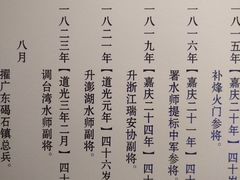 一八一五年【嘉庆二十
补烽火门参将。
一八一六年【嘉庆二十一年】四
署水师提标中军参将。
一八一九年【嘉庆二十四年】四
升浙江瑞安协副将。
一八二一年【道光元年】四十六岁
升澎湖水师副将。
一八二三年【道光三年二月】四十
调台湾水师副将。
八月
擢广东碣石镇总兵。